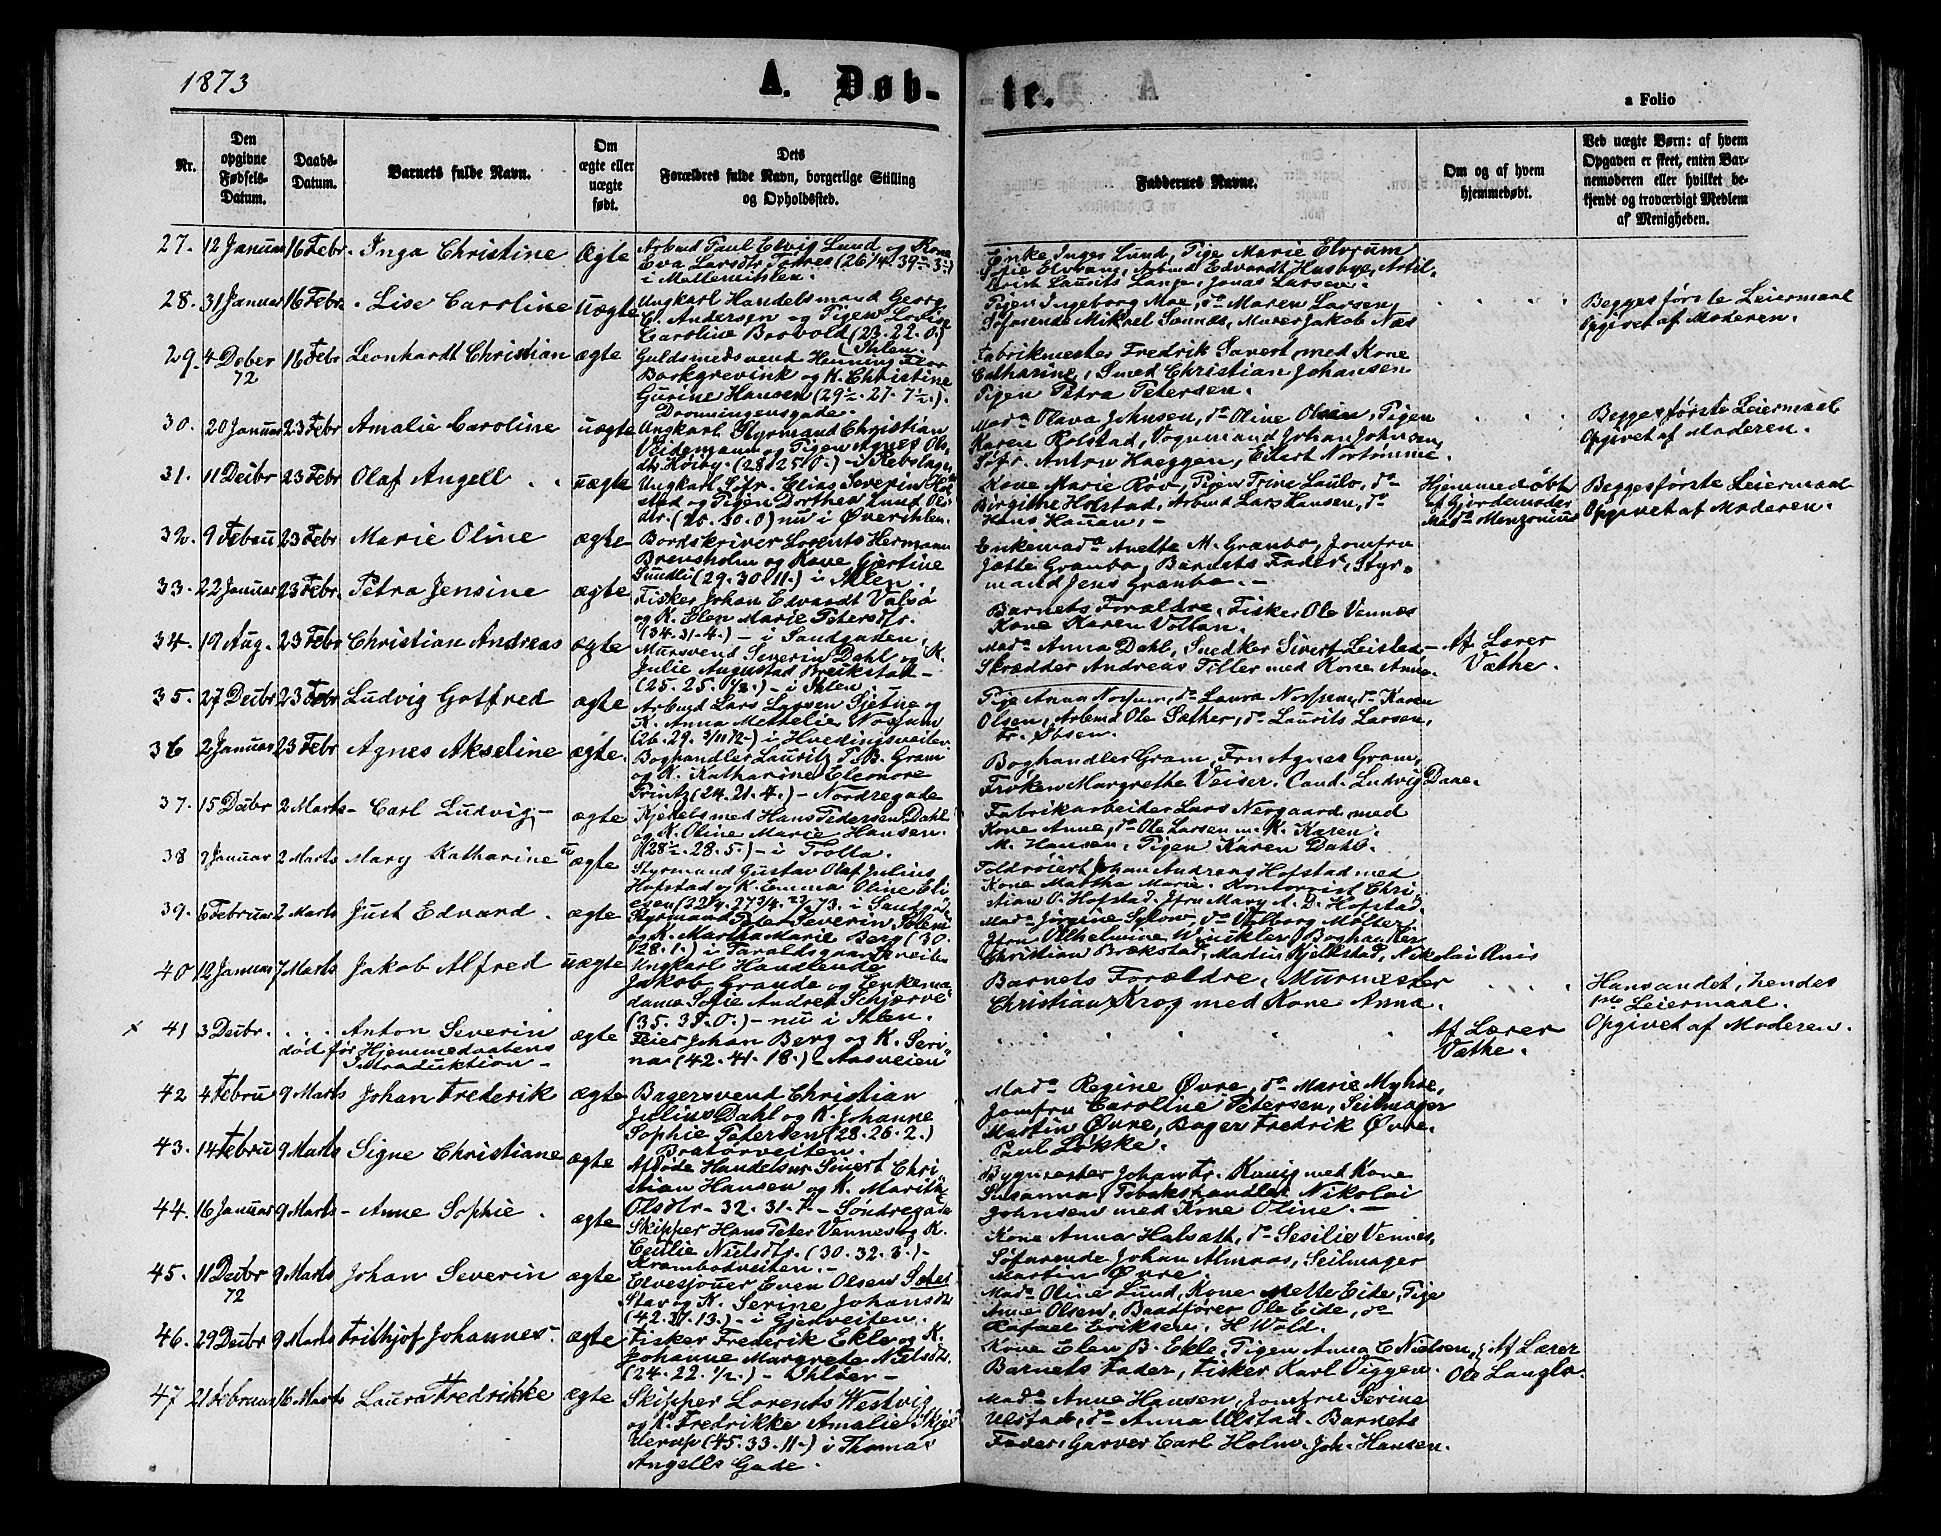 1873
A. Døb-
-te.
a Folio
Nr.
Den opgivne Fødsels-Datum.
Daabs-Datum.
Barnets fulde Navn.
Om ægte eller uægte født.
Dets Forældres fulde Navn, borgerlige Stilling og Opholdssted.
Faddernes Navne.
Om og af hvem hjemmedøbt.
Ved uægte Børn: af hvem Opgaven er skeet, enten Barnemoderen eller hvilket bekjendt og troværdigt Medlem af Menigheden.
27. 12 Januar 16 Febr. Inga Christine Ægte
Arbmd Paul Elvig Lund og Kone
Eva Larsdtr
i Møllemitslen.
Enke Inger Lund, Pige Marie Elvrum
Arbmd Edvardt Husbye, Artil.
Laurits Lange, Jonas Larsen.
28. 31 Januar 16 Febr. Lise Caroline uægte
Ungkarl Handelsmand Georg
C. Andersen og Pigen Lovise
Caroline Borvold (23. 22. 0.)
Ihlen
Pigen Ingeborg Moe, do Maren Larsen,
Søfarende Mikael Saunds, Murer Jakob Næs
Begges første Leiermaal
Opgivet af Moderen.
29. 4 Dcber 72 16 Febr Leonhardt Christian ægte
Guldsmedsvend Henning Fleor
Borkgrevink og K. Christine
Gurine Hansen (29½. 21. 7½.)
Dronningensgade.
Fabrikmester Fredrik Savert med Kone
Catharine, Smed Christian Johansen
Pigen Petra Petersen.
30. 20 Januar 23 Febr Amalie Caroline uægte
Ungkarl Styrmand Christian
Veidemann og Pigen Agnes Ols-
dtr Høiby (28. 25. 0.) - i
Mada Olava Johnsen, do Oline Olsen, Pigen
Karen Rolstad, Vognmand Johan Johnsen,
Søfr. Anton Haeggen, Eilert Nortømme.
Begges første Leiermaal
Opgivet af Moderen.
31. 11 Decbr 23 Febr Olaf Angell uægte
Ungkarl Søfr. Elias Severin Hol-
stad og Pigen Dorthea Lund Ols-
dtr. (20. 30. 0) nu i Øvreihlen.
Kone Marie Röv, Pigen Trine Laulo, do
Birgithe Holstad, Arbmd Lars Hansen, do
Hans Hauan.
Hjemmedøbt
af Gjordemoder
Mada Monzonius
Begges første Leiermaal
Opgivet af Moderen.
32. 9 Febru 23 Febr Marie Oline ægte
Bordskriver Lorents Hermann
Brønsholm og Kone Gjertine
Sundli (29. 30. 11.) i Ihlen.
Enkemada Anette M. Granbo, Jomfru
Jøtte Granbo, Barnets Fader, Styr-
mand Jens Granbo.
33. 22 Januar 23 Febr. Petra Jensine ægte
Fisker Johan Edvardt Valsø
og K. Elen Marie Petersdtr.
(34. 31. 4.) - i Sandgaden.
Barnets Forældre, Fisker Ole Vennæs
Kone Karen Vollan.
34. 19 Aug. 23 Febr Christian Andreas ægte
Mursvend Severin Dahl og K.
Julie Augustad Breikstad -
(25. 25. ½.) - i Ihlen
Mada Anna Dahl, Snedker Sivert Leistad,
Skrædder Andreas Tiller med Kone Anne
Af Lærer
Væthe.
35. 27 Decbr 23 Febr Ludvig Gotfred ægte
Arbmd Lars Larsen Sjetne og
K. Anna Mettelie Nossum
(26. 29. 3/11 72) i Hvedingsveiten
Pige Anna Nossum, do Laura Nossum, do Karen
Olsen, Arbmd Ole Sæther, do Laurits Larsen,
Fr. Ibsen.
36 2 Januar 23 Febr Agnes Akseline ægte.
Boghandler Lauritz P. B. Gram
og K. Katharine Eleonore
Printz (24. 21. 4.) - Nordregade
Boghandler Gram, Fru Agnes Gram,
Frøken Margrethe Veiser. Cand. Ludvig Daae.
37. 15 Decbr 2 Marts - Carl Ludvig - ægte
Kjikelsmed Hans Pedersen Dahl
og K. Oline Marie Hansen.
(28½. 28. 5.) - i Trolla.
Fabrikarbeider Lars Nergaard med
Kone Anne, do Ole Larsen m. K. Karen.
M. Hansen, Pigen Karen Dahl.
38 9 Januar 2 Marts Mary Katharine ægte
Styrmand Gustav Olaf Julius
Hofstad og K. Emma Oline Eli-
i Sandg
Toldrørert Johan Andreas Hofstad med
Kone Martha Marie. Kontorist Chri-
stian O. Hofstad. Jfru Mary A. D. Hofstad.
39. 6 Februar 2 Marts Just Edvard. ægte
Styrmand Peter Severin Solem
og K. Martha Marie Berg (30.
28. 1.) i Taraldsgaardsveiten
Mada Jørgine Sylow, do Valborg Møller,
Jfru Vilhelmine Winckler, Boghan
Christian Brækstad, Madius Kjelkstad, Nikolai Anis
40 12 Januar 7 Marts Jakob Alfred uægte
Ungkarl Handlende
Jakob Grande og Enkema-
dame Sofie Andrea Schjerve
(35. 35. 0.) - nu i Ihlen.
Barnets Forældre, Murmester
Christian Krog med Kone Anna.
Hans andet, hendes
1ste Leiermaal.
Opgivet af Moderen.
x 41 3 Decbr. Anton Severin ægte
død før Hjemmedaabens
Introduktion -
Feier Johan Berg og K. Seri-
na (42. 41. 18.) - Aasveien
Af Lærer
Væthe.
42 4 Febru 9 Marts Johan Frederik ægte
Bagersvend Christian
Julius Dahl og K. Johanne
Sophie Petersen (28. 26. 2.)
Bratørveiten.
Mada Regine Øvre, do Marie Myhre,
Jomfru Caroline Petersen, Seilmager
Martin Øvre, Bager Fredrik Øvre.
Paul Løkke.
43. 14 Febru 9 Marts Signe Christiane ægte
Afdøde Handelsmr Sivert Chri-
stian Hansen og K. Marith
Olsdtr - 32. 31. 7. - Søndregade
Bygmester Johan Fr. König med Kone
Susanna, Tobakshandler Nikolai
Johnsen med Kone Oline. -
44. 16 Januar 9 Marts - Anne Sophie. ægte
Skipper Hans Peter Vennes og K.
Cecilie Nielsdtr. (30. 32. 3.) -
Krambodveiten. -
Kone Anna Halsath, do Sesilie Vennes,
Søfarende Johan Almaas, Seilmager
Martin Øvre.
45. 11 Decbr 72 9 Marts Johan Severin ægte
Elvesjouer Even Olsen Soter
Stav og K. Serine Johansdtr
(42. 37. 13.) - i Gjetveiten.
Mada Oline Lund, Kone Mette Eide, Pige
Anne Olsen, Baadfører Ole Eide, do
Rafael Eriksen. H Wold.
46. 29 Decbr 9 Marts Frithjof Johannes. ægte
Fisker Frederik Ekle og K.
Johanne Margrete Nielsdtr.
(24. 22. ½.) - Ihlöer -
Kone Elen B. Ekle, Pigen Anna C Nielsen,
Barnets Fader, Fisker Karl Viggen.
Af Lærer
Ole Langlo.
47 21 Februar 16 Marts Laura Fredrikke ægte
Skipper Lorents Westvig
og K. Fredrikke Amalie Skjel-
derup (45. 33. 11.) i Thomas
Angells Gade.
Mada Anne Hansen, Jomfru Serine
Ulstad, do Anna Ulstad. Barnets
Fader, Garver Carl Holm. Joh. Hansen.